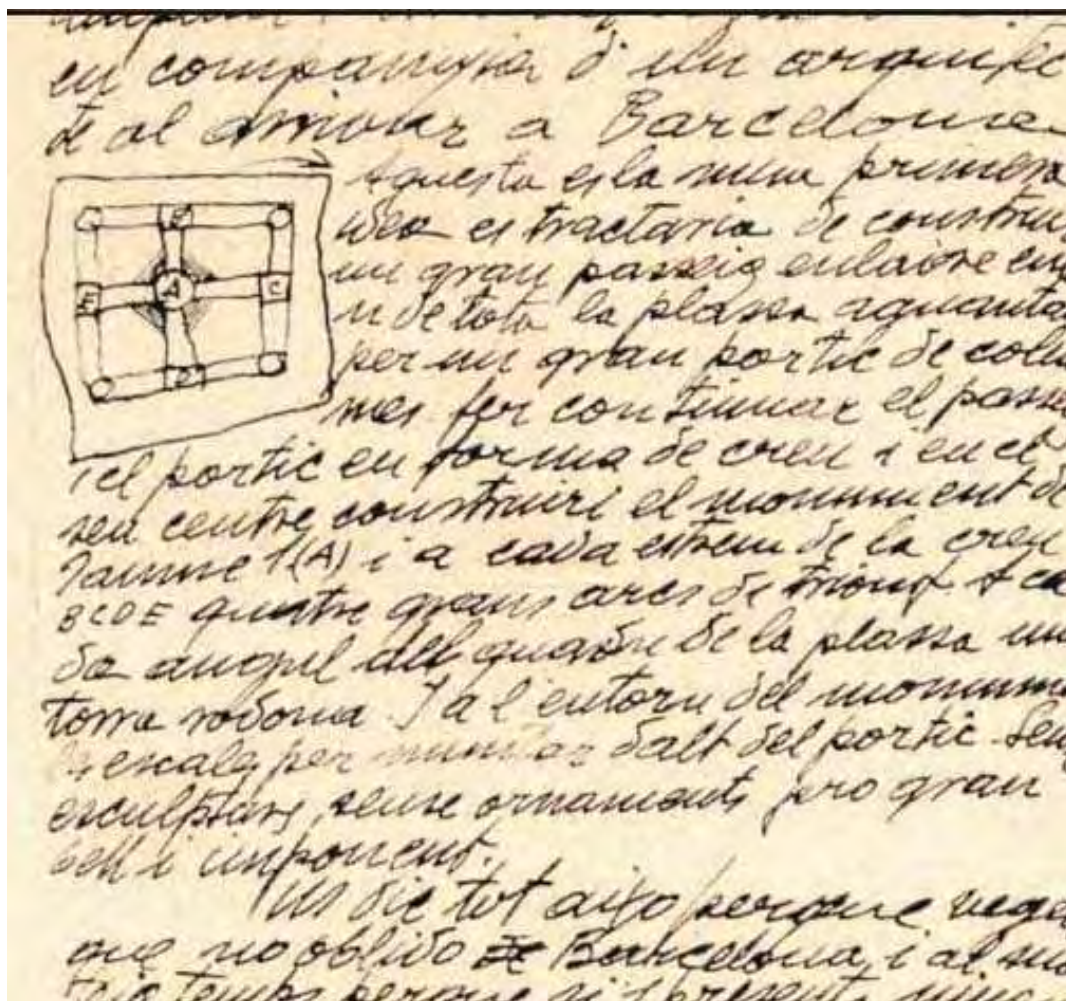 en companyia d'un arquitec
te al arrivar a Barcelona
Aquesta es la meva primera
idea es tractaria de construi
un gran passeig enlaire en
n de tota la plassa aguanta
per un gran portic de colu
nes fer continuar el passe
i el portic en forma de creu i en el
seu centre construiri el monument de
Jaume I (A) i a cada extrem de la creu
BCDE quatre grans arcs de triomf i ca
da angul del quadre de la plassa un
torra rodona. I al entorn del monum
escales per muntar dalt del portic. Sen
esculptors, sense ornaments pro gran
bell i imponent.
Us dic tot aixo perque vege
que no oblido de Barcelona, i al ma
teix temps perque si s presenta
B
E A C
D